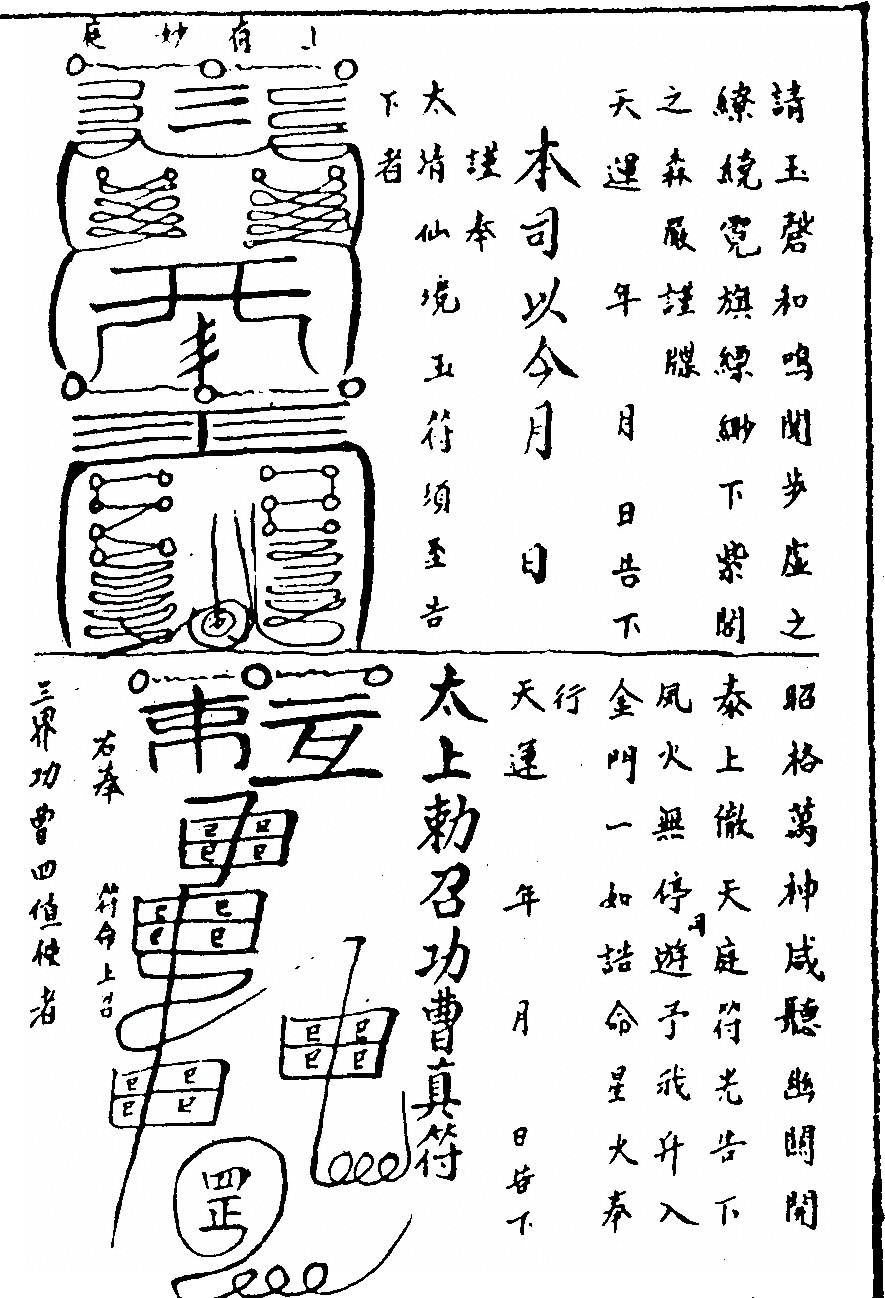 請玉磬和鳴閒步虛之
繚繞霓旗縹緲下紫關
之森嚴謹牒
天運 年 月 日告下
本司以今月 日
謹奉
太清仙境玉符須至告
下者
上有妙庭
昭格萬神咸聽幽關開
泰上徹天庭符光告下
風火無停遊予我升入
金門一如誥命星火奉
行
天運 年 月 日告下
太上勅召功曹真符
四正
右奉 符命上召
三界功曹四值使者